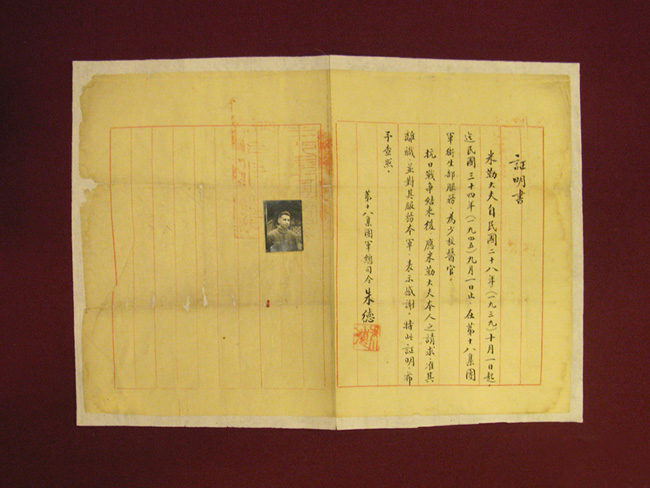 証明書
米勒大夫自民國二十八年(一九三九)十月一日起,
迄民國三十四年(一九四五)九月一日止,在第十八集團
軍衛生部服務,為少校醫官。
抗日戰爭結束後,應米勒大夫本人之請求,准其
離職,並對其服務本軍,表示感謝。特此証明,希
予查照。
第十八集團軍總司令 朱德